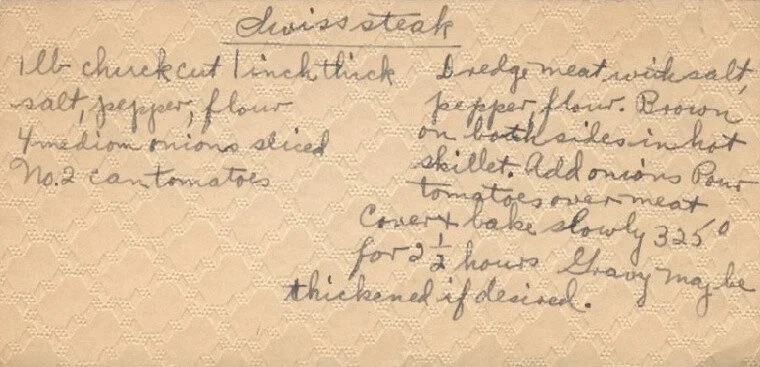 Swiss steak
1 lb chuck cut 1 inch thick
salt, pepper, flour
4 mediom onions sliced
No. 2 can tomatoes
Dredge meat with salt,
pepper, flour. Brown
on both sides in hot
skillet. Add onions Pour
tomatoes over meat
Cover + bake slowly 325°
for 2 1/2 hours Gravy may be
thickened if desired.